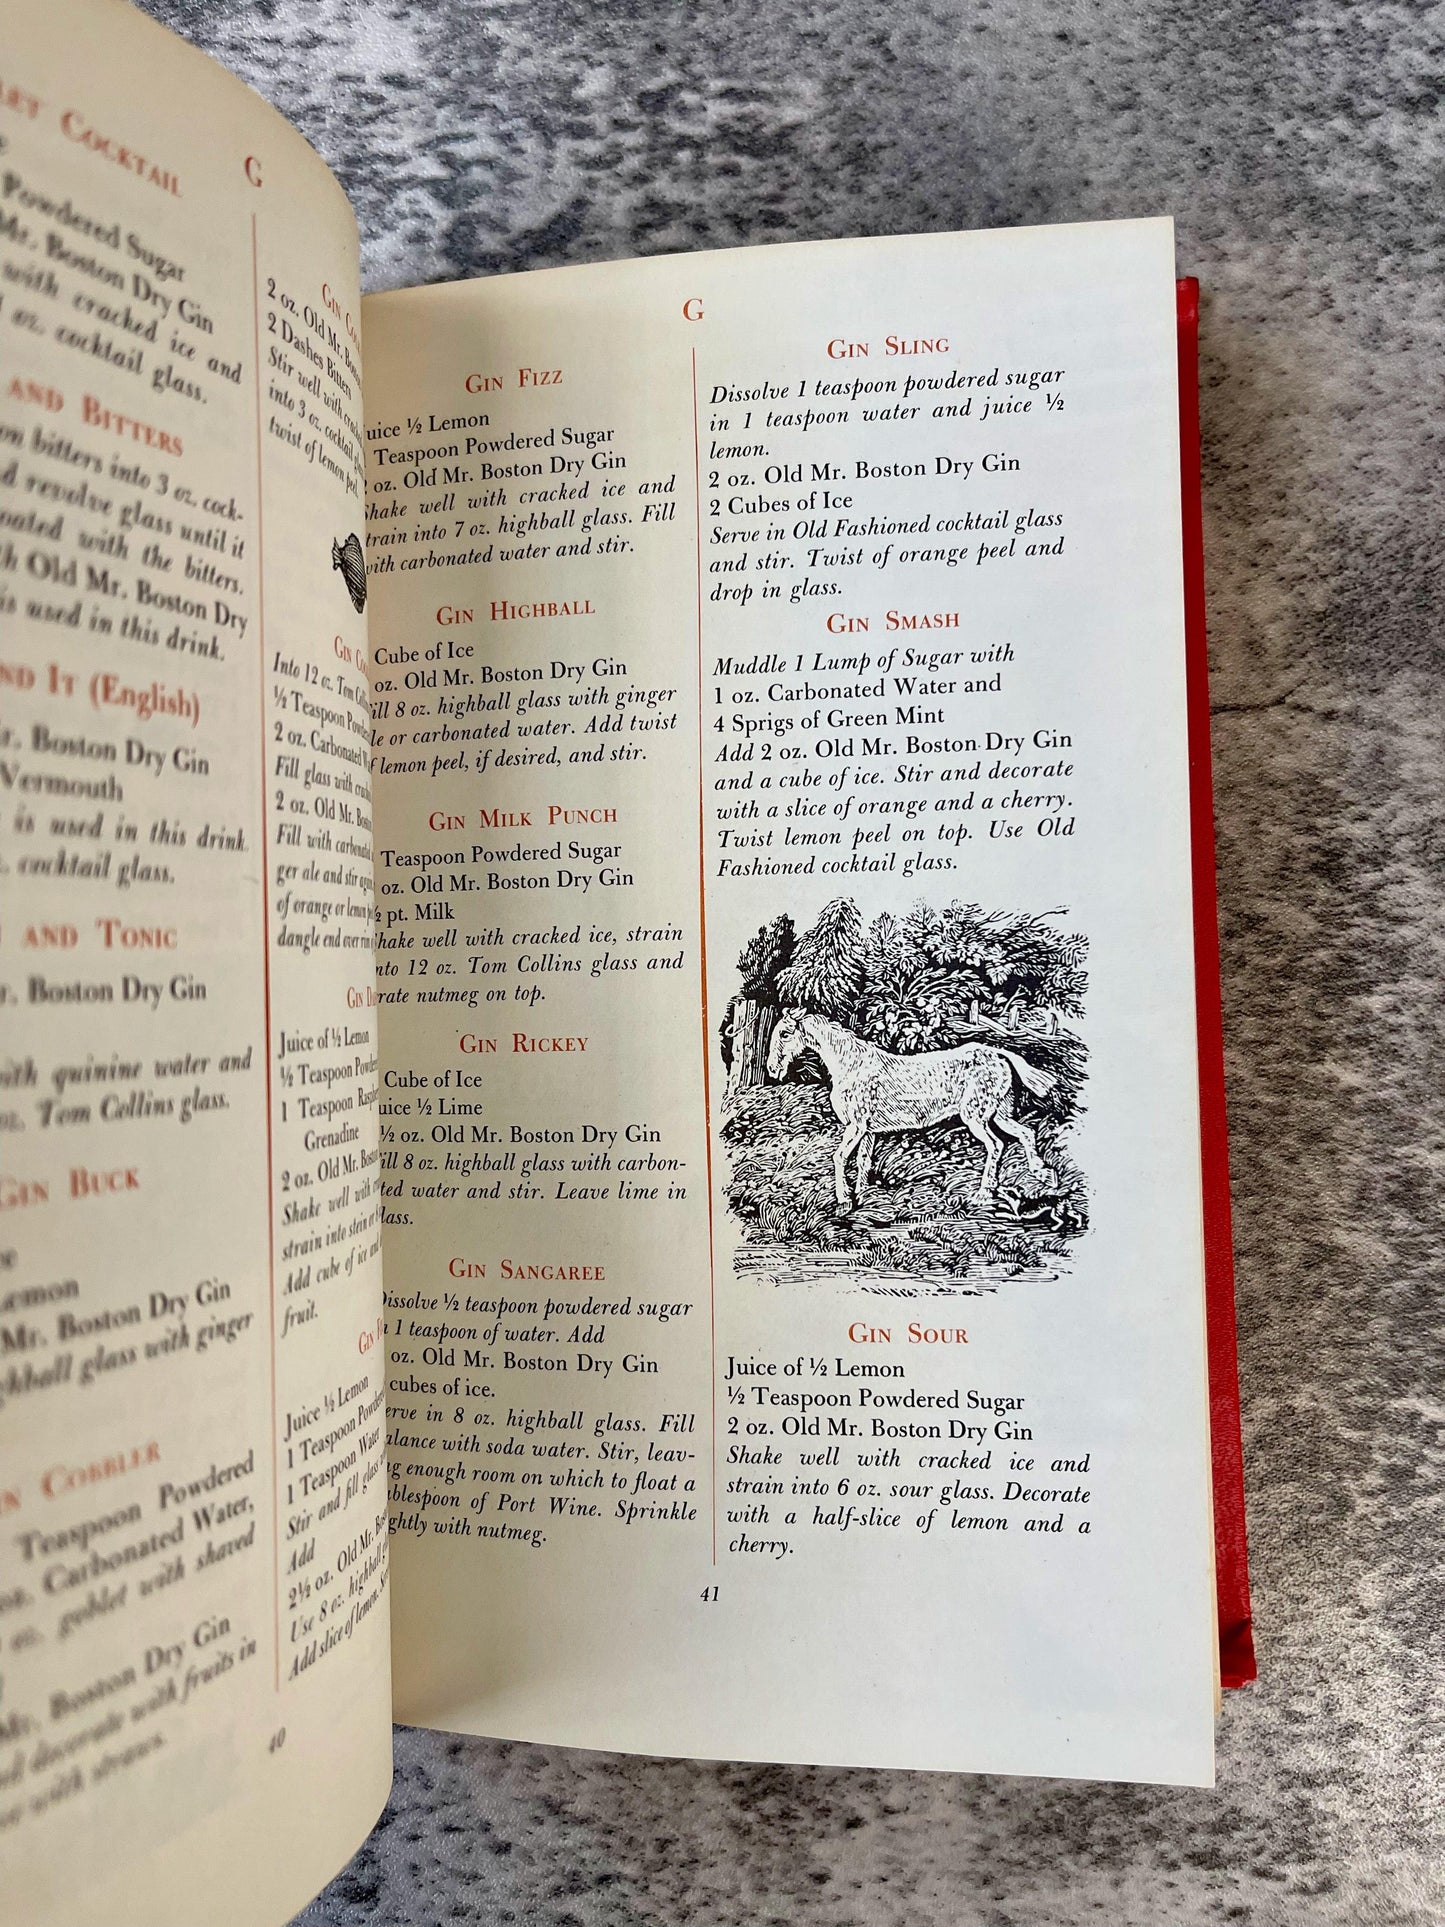 COCKTAIL
G
Powdered Sugar
Mr. Boston Dry Gin
with cracked ice and
oz. cocktail glass.
AND BITTERS
bitters into 3 oz. cock-
revolve glass until it
with the bitters.
Old Mr. Boston Dry
is used in this drink.
IT (English)
Boston Dry Gin
Vermouth
is used in this drink
cocktail glass.
AND TONIC
Boston Dry Gin
with quinine water and
oz. Tom Collins glass.
GIN BUCK
Lemon
Mr. Boston Dry Gin
highball glass with ginger
COBBLER
Teaspoon Powdered
oz. Carbonated Water,
oz. goblet with shaved
Mr. Boston Dry Gin
and decorate with fruits in
with straws.
GIN
2 oz. Old Mr.
2 Dashes Bitters
Stir well with
into 3 oz. cocktail
twist of lemon peel.
GIN
Into 12 oz. Tom
½ Teaspoon
2 oz. Carbonated
Fill glass with
2 oz. Old Mr.
Fill with
ger ale and stir
of orange or lemon
dangle end over
GIN
Juice of ½ Lemon
½ Teaspoon
1 Teaspoon
Grenadine
2 oz. Old Mr.
Shake well with
strain into stein or
Add cube of ice and
fruit.
GIN
Juice ½ Lemon
1 Teaspoon
1 Teaspoon Water
Stir and fill glass
Add
2½ oz. Old Mr.
Use 8 oz. highball
Add slice of lemon.
40
G
GIN FIZZ
½ Lemon
Teaspoon Powdered Sugar
oz. Old Mr. Boston Dry Gin
well with cracked ice and
into 7 oz. highball glass. Fill
with carbonated water and stir.
GIN HIGHBALL
Cube of Ice
oz. Old Mr. Boston Dry Gin
8 oz. highball glass with ginger
or carbonated water. Add twist
lemon peel, if desired, and stir.
GIN MILK PUNCH
Teaspoon Powdered Sugar
oz. Old Mr. Boston Dry Gin
pt. Milk
well with cracked ice, strain
12 oz. Tom Collins glass and
nutmeg on top.
GIN RICKEY
Cube of Ice
½ Lime
½ oz. Old Mr. Boston Dry Gin
8 oz. highball glass with carbon-
water and stir. Leave lime in
GIN SANGAREE
½ teaspoon powdered sugar
1 teaspoon of water. Add
oz. Old Mr. Boston Dry Gin
cubes of ice.
in 8 oz. highball glass. Fill
with soda water. Stir, leav-
enough room on which to float a
of Port Wine. Sprinkle
with nutmeg.
GIN SLING
Dissolve 1 teaspoon powdered sugar
in 1 teaspoon water and juice ½
lemon.
2 oz. Old Mr. Boston Dry Gin
2 Cubes of Ice
Serve in Old Fashioned cocktail glass
and stir. Twist of orange peel and
drop in glass.
GIN SMASH
Muddle 1 Lump of Sugar with
1 oz. Carbonated Water and
4 Sprigs of Green Mint
Add 2 oz. Old Mr. Boston Dry Gin
and a cube of ice. Stir and decorate
with a slice of orange and a cherry.
Twist lemon peel on top. Use Old
Fashioned cocktail glass.
GIN SOUR
Juice of ½ Lemon
½ Teaspoon Powdered Sugar
2 oz. Old Mr. Boston Dry Gin
Shake well with cracked ice and
strain into 6 oz. sour glass. Decorate
with a half-slice of lemon and a
cherry.
41